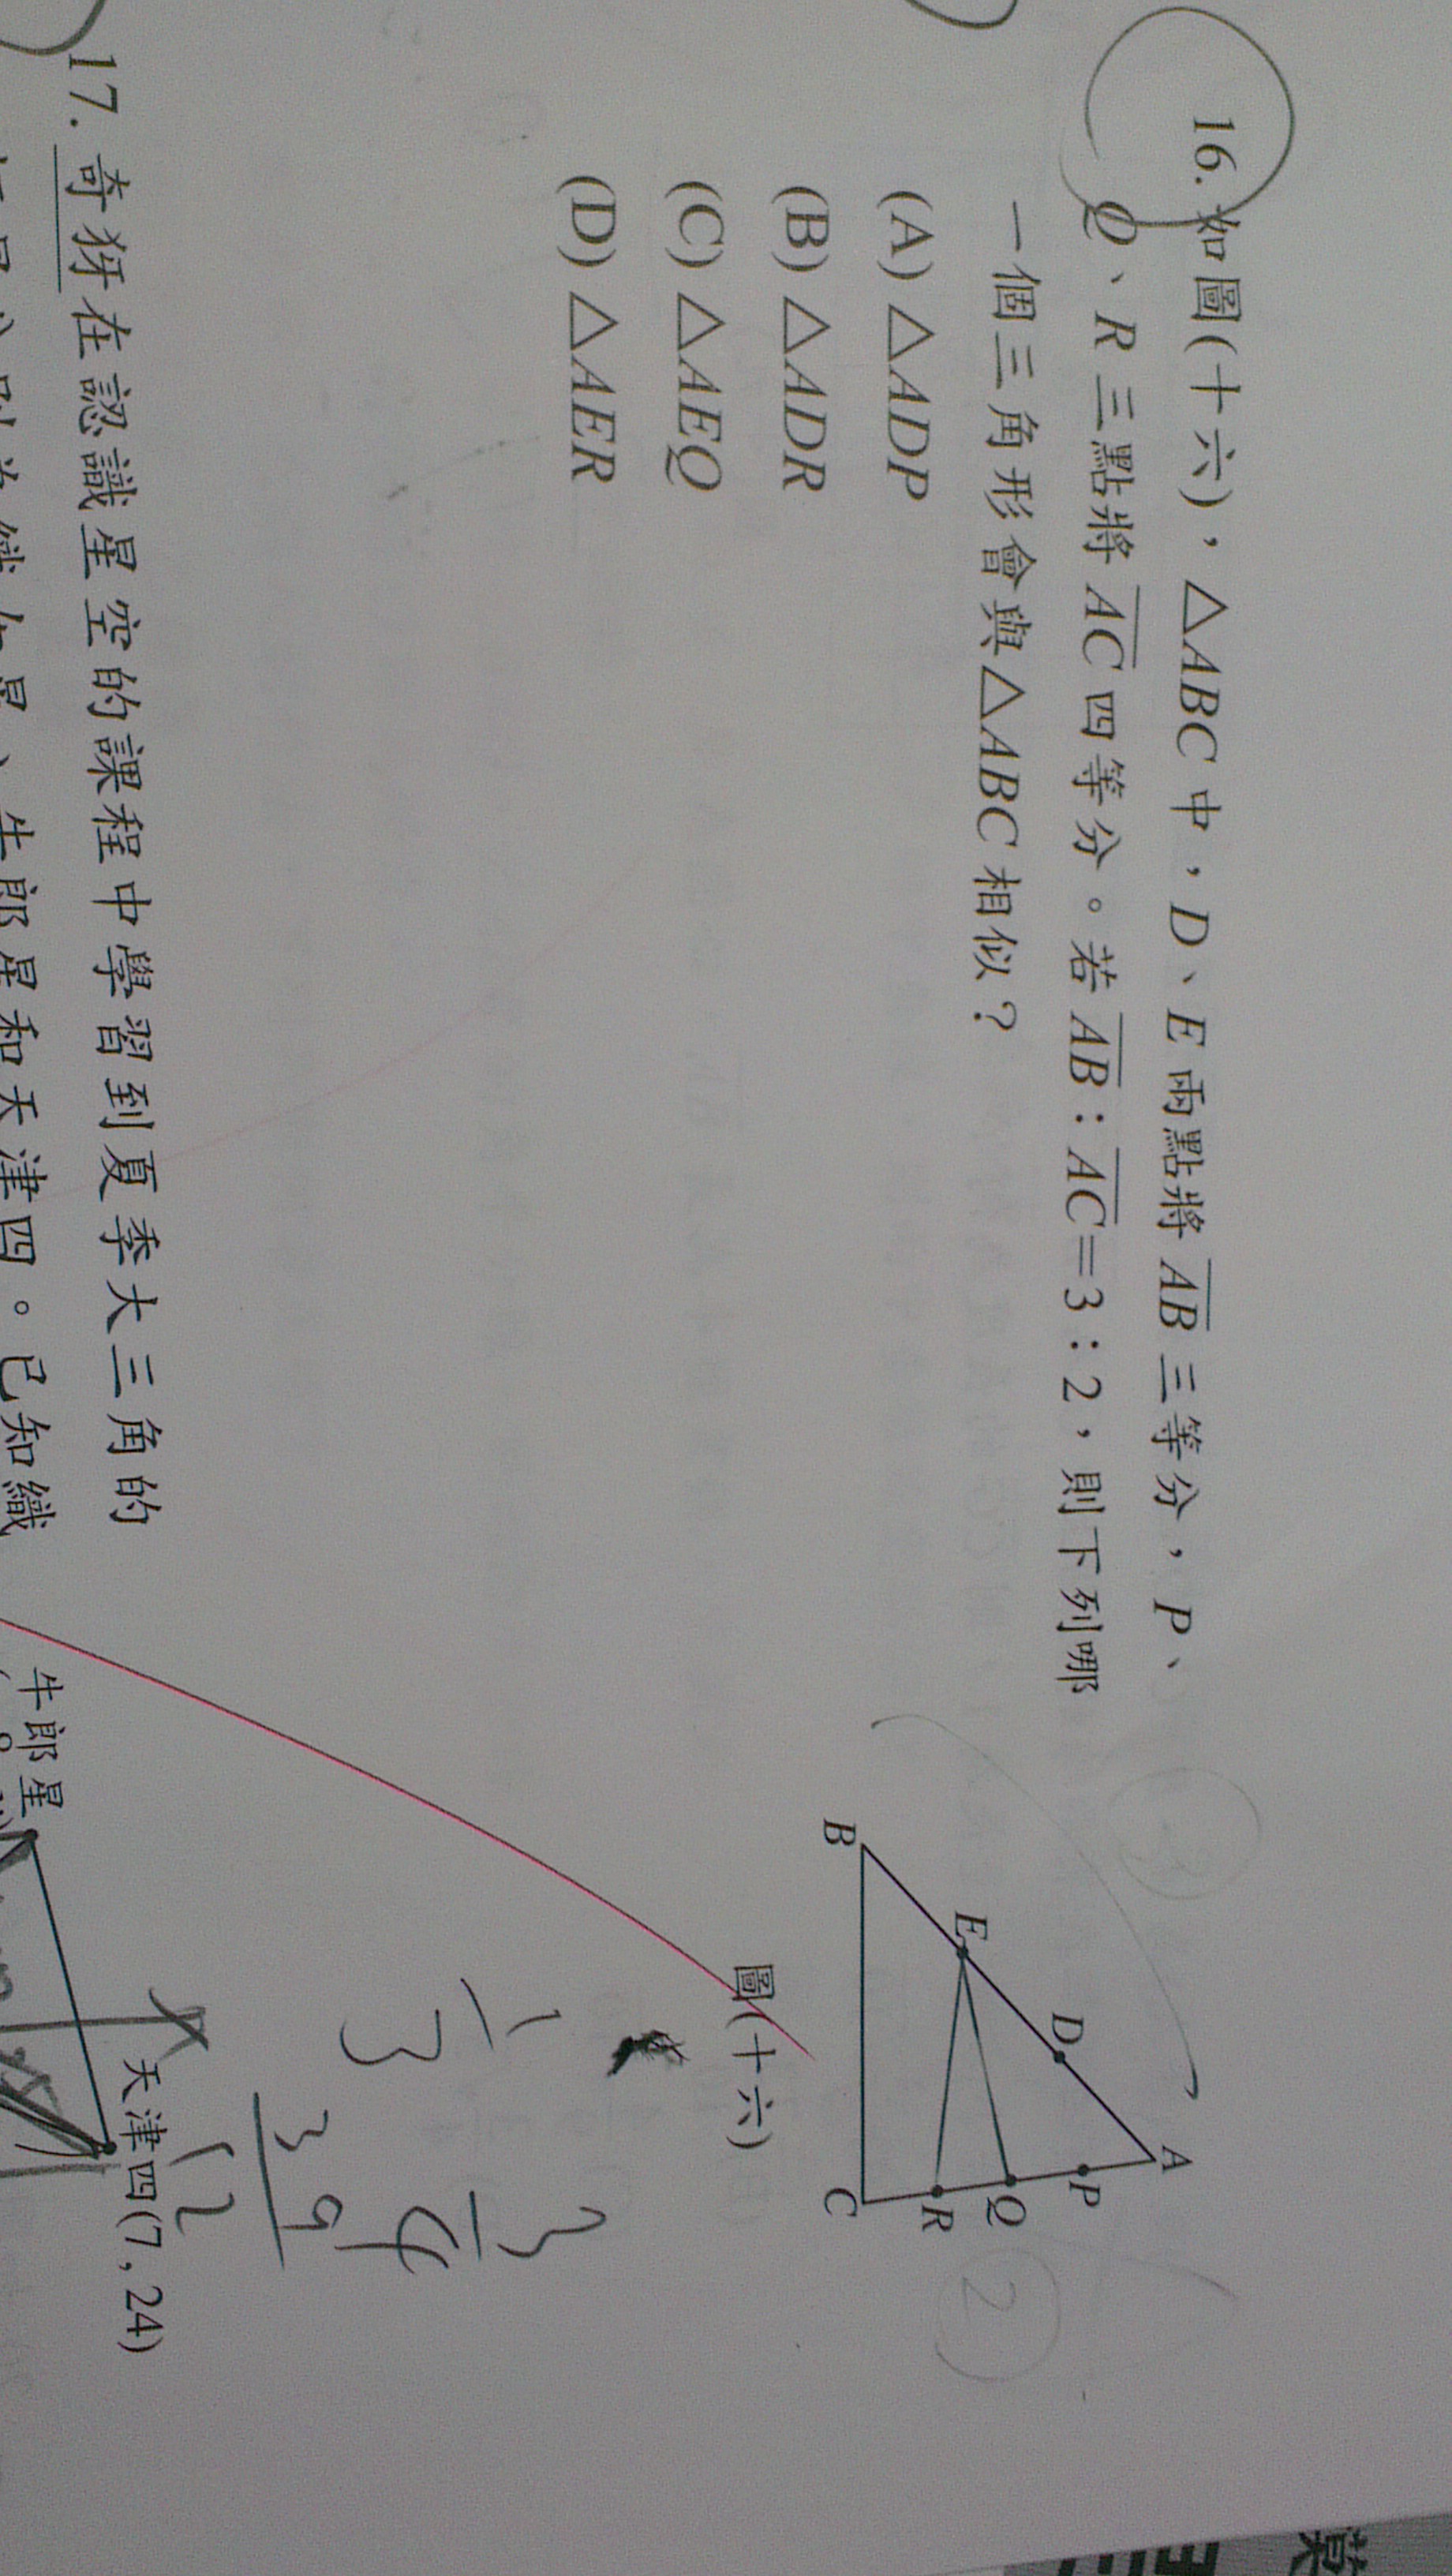 16. 如圖(十六)，△ABC中，D、E兩點將AB三等分，P、
Q、R三點將AC四等分。若AB：AC=3：2，則下列哪
一個三角形會與△ABC相似？
(A) △ADP
(B) △ADR
(C) △AEQ
(D) △AER
A
D
P
E
Q
R
B
C
圖(十六)
3
2
1
3
3
4
3
9
12
17. 奇犽在認識星空的課程中學習到夏季大三角的
牛郎星和天津四。已知織
天津四(7, 24)
牛郎星